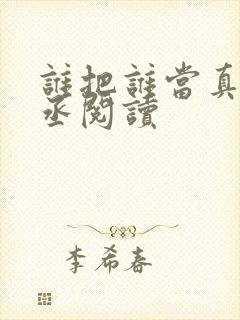 誰把誰當真
丞閱讀
李希春